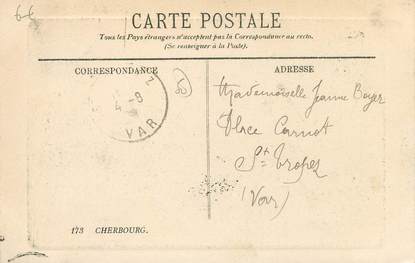 CARTE POSTALE
Tous les Pays étrangers n'acceptent pas la Correspondance au recto.
(Se renseigner à la Poste).
CORRESPONDANCE
ADRESSE
VAR
Mademoiselle Jeanne Boyer
Place Carnot
St Tropez
(Var)
173 CHERBOURG.